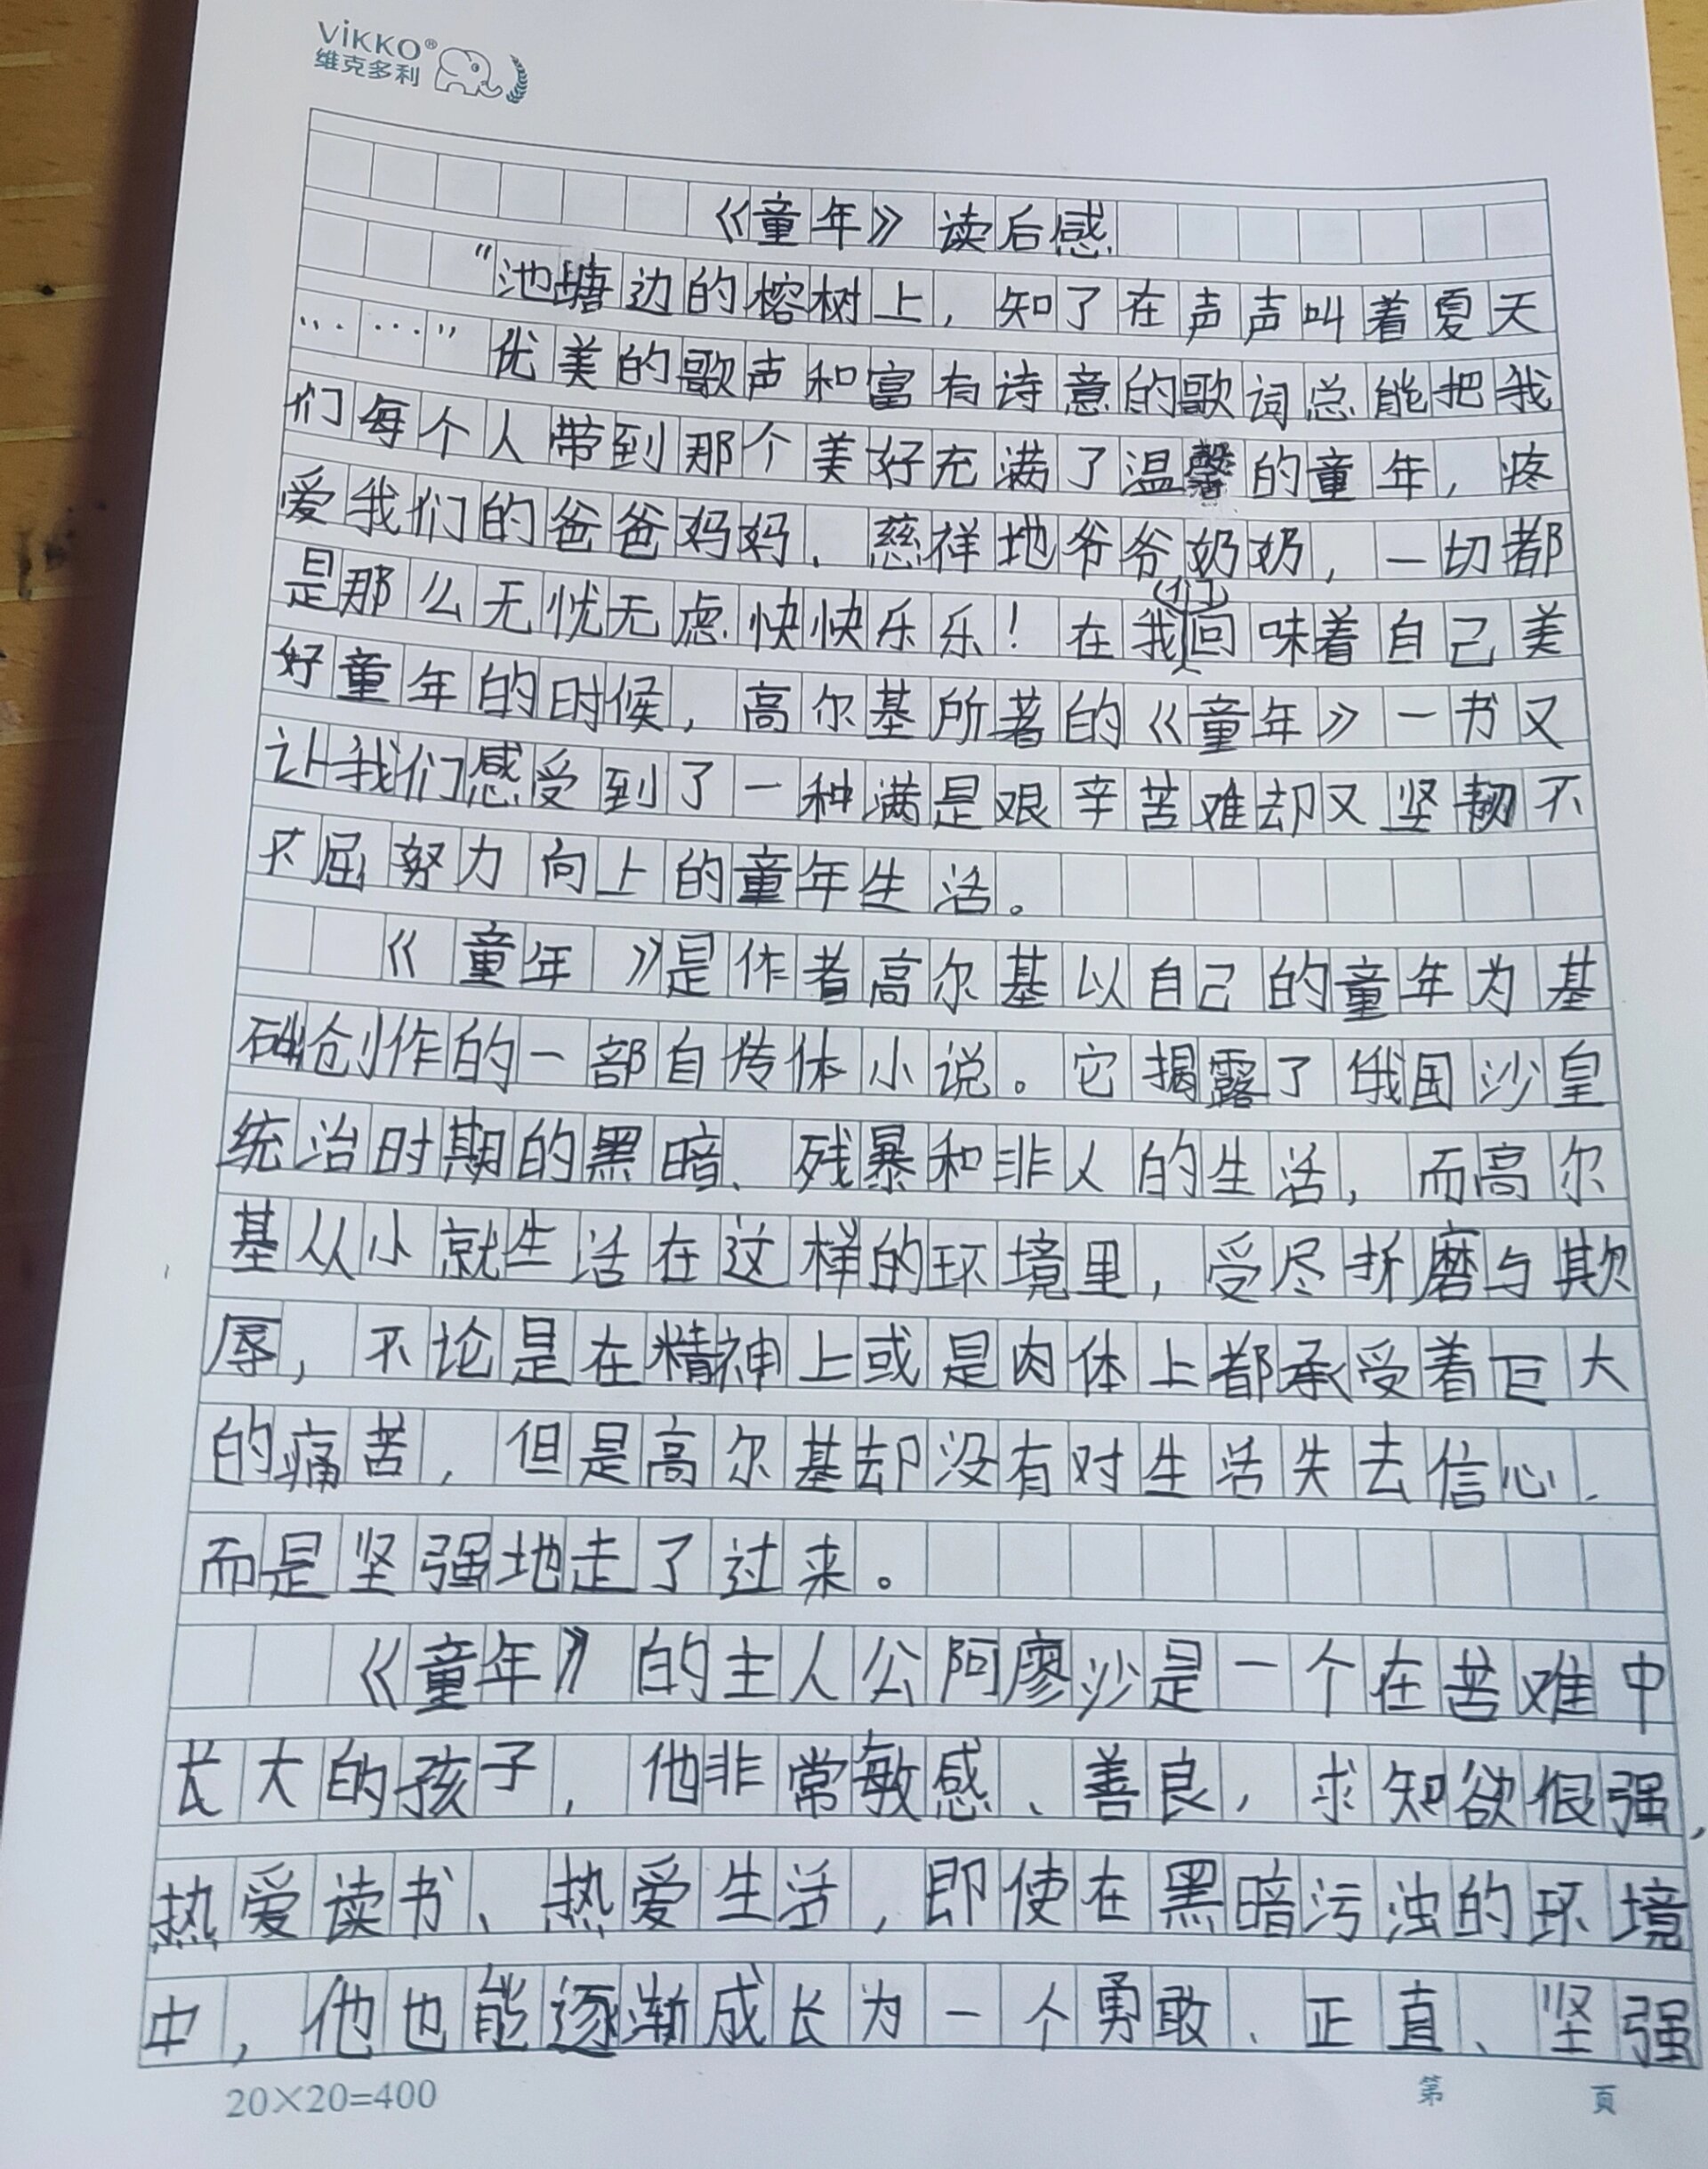 ViKKO®
维克多利
《童年》读后感
“池塘边的榕树上，知了在声声叫着夏天
……”优美的歌声和富有诗意的歌词总能把我
们每个人带到那个美好充满了温馨的童年，疼
爱我们的爸爸妈妈、慈祥地爷爷奶奶，一切都
是那么无忧无虑快快乐乐！在我们回味着自己美
好童年的时候，高尔基所著的《童年》一书又
让我们感受到了一种满是艰辛苦难却又坚韧不
不屈努力向上的童年生活。
《童年》是作者高尔基以自己的童年为基
础创作的一部自传体小说。它揭露了俄国沙皇
统治时期的黑暗、残暴和非人的生活，而高尔
基从小就生活在这样的环境里，受尽折磨与欺
辱，不论是在精神上或是肉体上都承受着巨大
的痛苦，但是高尔基却没有对生活失去信心、
而是坚强地走了过来。
《童年》的主人公阿廖沙是一个在苦难中
长大的孩子，他非常敏感、善良，求知欲很强，
热爱读书、热爱生活，即使在黑暗污浊的环境
中，他也能逐渐成长为一个勇敢、正直、坚强
20×20=400
第 頁